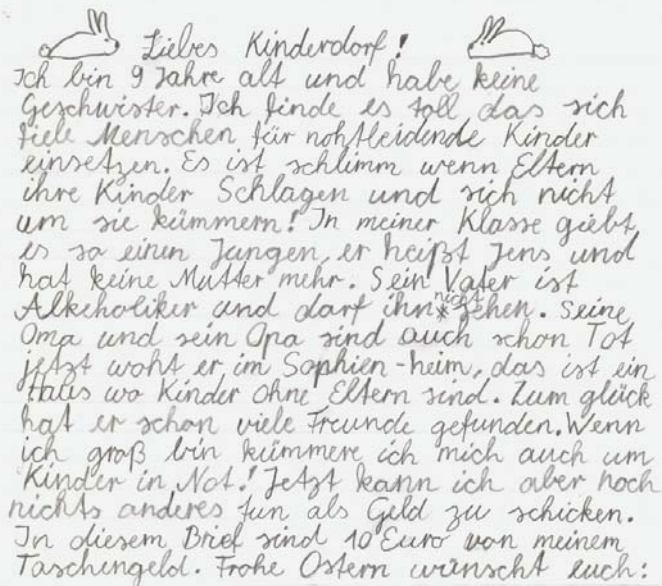 Liebes Kinderdorf!
Ich bin 9 Jahre alt und habe keine
Geschwister. Ich finde es toll das sich
fiele Menschen für nohtleidende Kinder
einsetzen. Es ist schlimm wenn Eltern
ihre Kinder Schlagen und sich nicht
um sie kümmern! In meiner Klasse giebt
es so einen Jungen, er heißt Jens und
hat keine Mutter mehr. Sein Vater ist
Alkeholiker und darf ihn * nicht sehen. Seine
Oma und sein Opa sind auch schon Tot
jetzt woht er im Sophien-heim, das ist ein
Haus wo Kinder ohne Eltern sind. Zum glück
hat er schon viele Freunde gefunden. Wenn
ich groß bin kümmere ich mich auch um
Kinder in Not! Jetzt kann ich aber noch
nichts anderes tun als Geld zu schicken.
In diesem Brief sind 10 Euro von meinem
Taschengeld. Frohe Ostern wünscht euch: